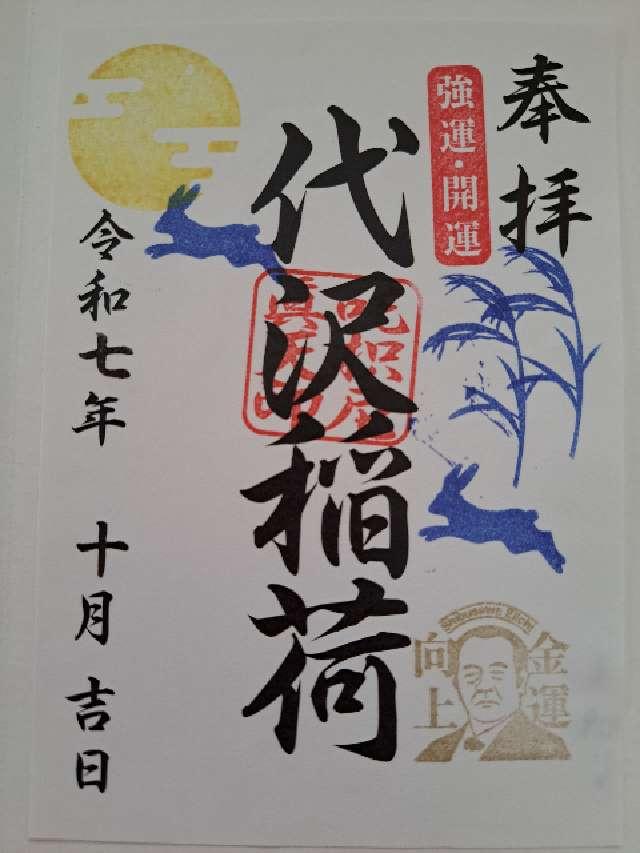 奉拝
強運・開運
代沢稲荷
令和七年 十月 吉日
Shibusawa Eiichi
金運
向上